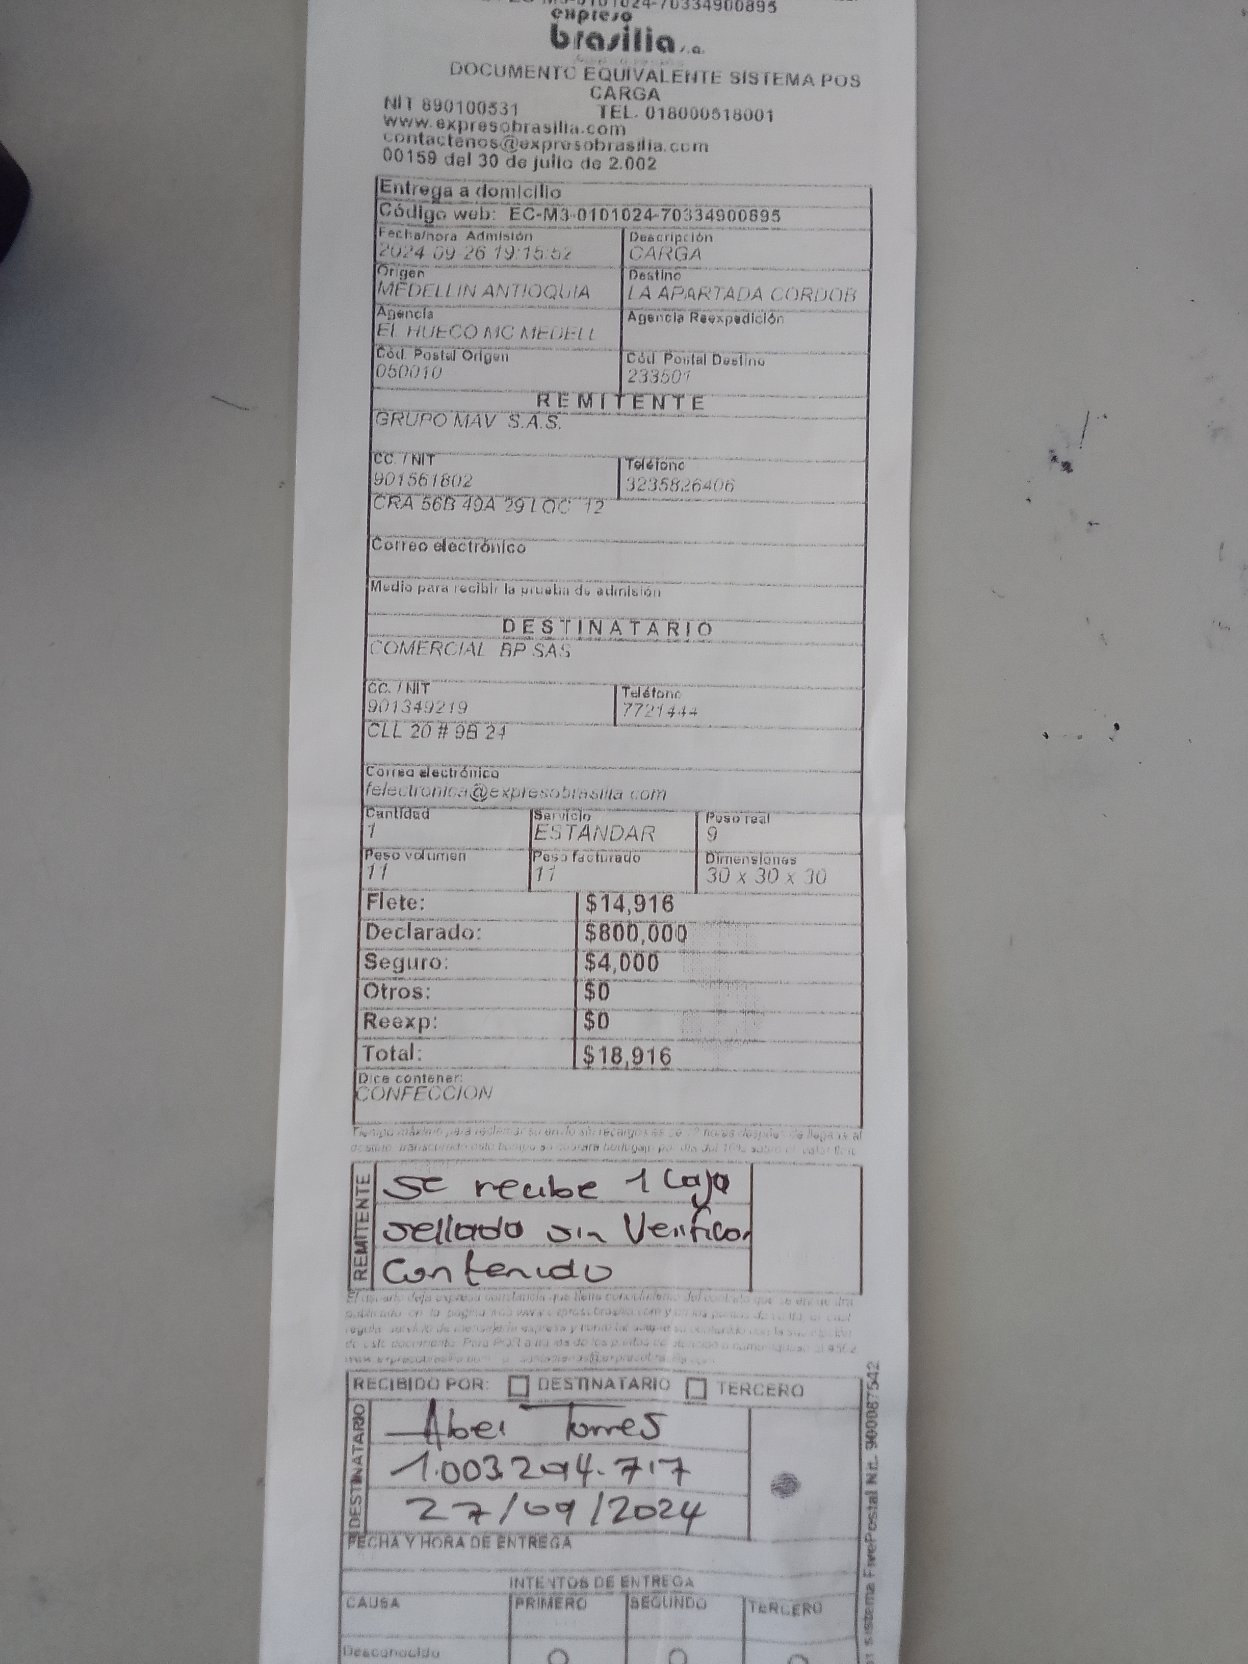 expreso
brasilia s.a.
DOCUMENTO EQUIVALENTE SISTEMA POS
CARGA
NIT 890100531 TEL. 018000518001
www.expresobrasilia.com
contactenos@expresobrasilia.com
00159 del 30 de julio de 2.002
Entrega a domicilio
Código web: EC-M3-0101024-70334900895
Fecha/hora Admisión Descripción
2024 09 26 19:15:52 CARGA
Origen Destino
MEDELLIN ANTIOQUIA LA APARTADA CORDOB
Agencia Agencia Reexpedición
EL HUECO MC MEDELL
Cód. Postal Origen Cód. Postal Destino
050010 233501
REMITENTE
GRUPO MAV S.A.S.
CC. / NIT Teléfono
901561802 3235826406
CRA 56B 49A 29 LOC 12
Correo electrónico
Medio para recibir la prueba de admisión
DESTINATARIO
COMERCIAL BP SAS
CC. / NIT Teléfono
901349219 7721444
CLL 20 # 9B 24
Correo electrónico
felectronica@expresobrasilia.com
Cantidad Servicio Peso real
1 ESTANDAR 9
Peso volumen Peso facturado Dimensiones
11 11 30 x 30 x 30
Flete: $14,916
Declarado: $800,000
Seguro: $4,000
Otros: $0
Reexp: $0
Total: $18,916
Dice contener:
CONFECCION
REMITENTE
Se recibe 1 Caja
sellado sin Verificar
Contenido
RECIBIDO POR: DESTINATARIO TERCERO
DESTINATARIO
Abel Torres
1.003.294.717
27/09/2024
FECHA Y HORA DE ENTREGA
INTENTOS DE ENTREGA
CAUSA PRIMERO SEGUNDO TERCERO
Desconocido
sistema FivePostal Nit. 900087542